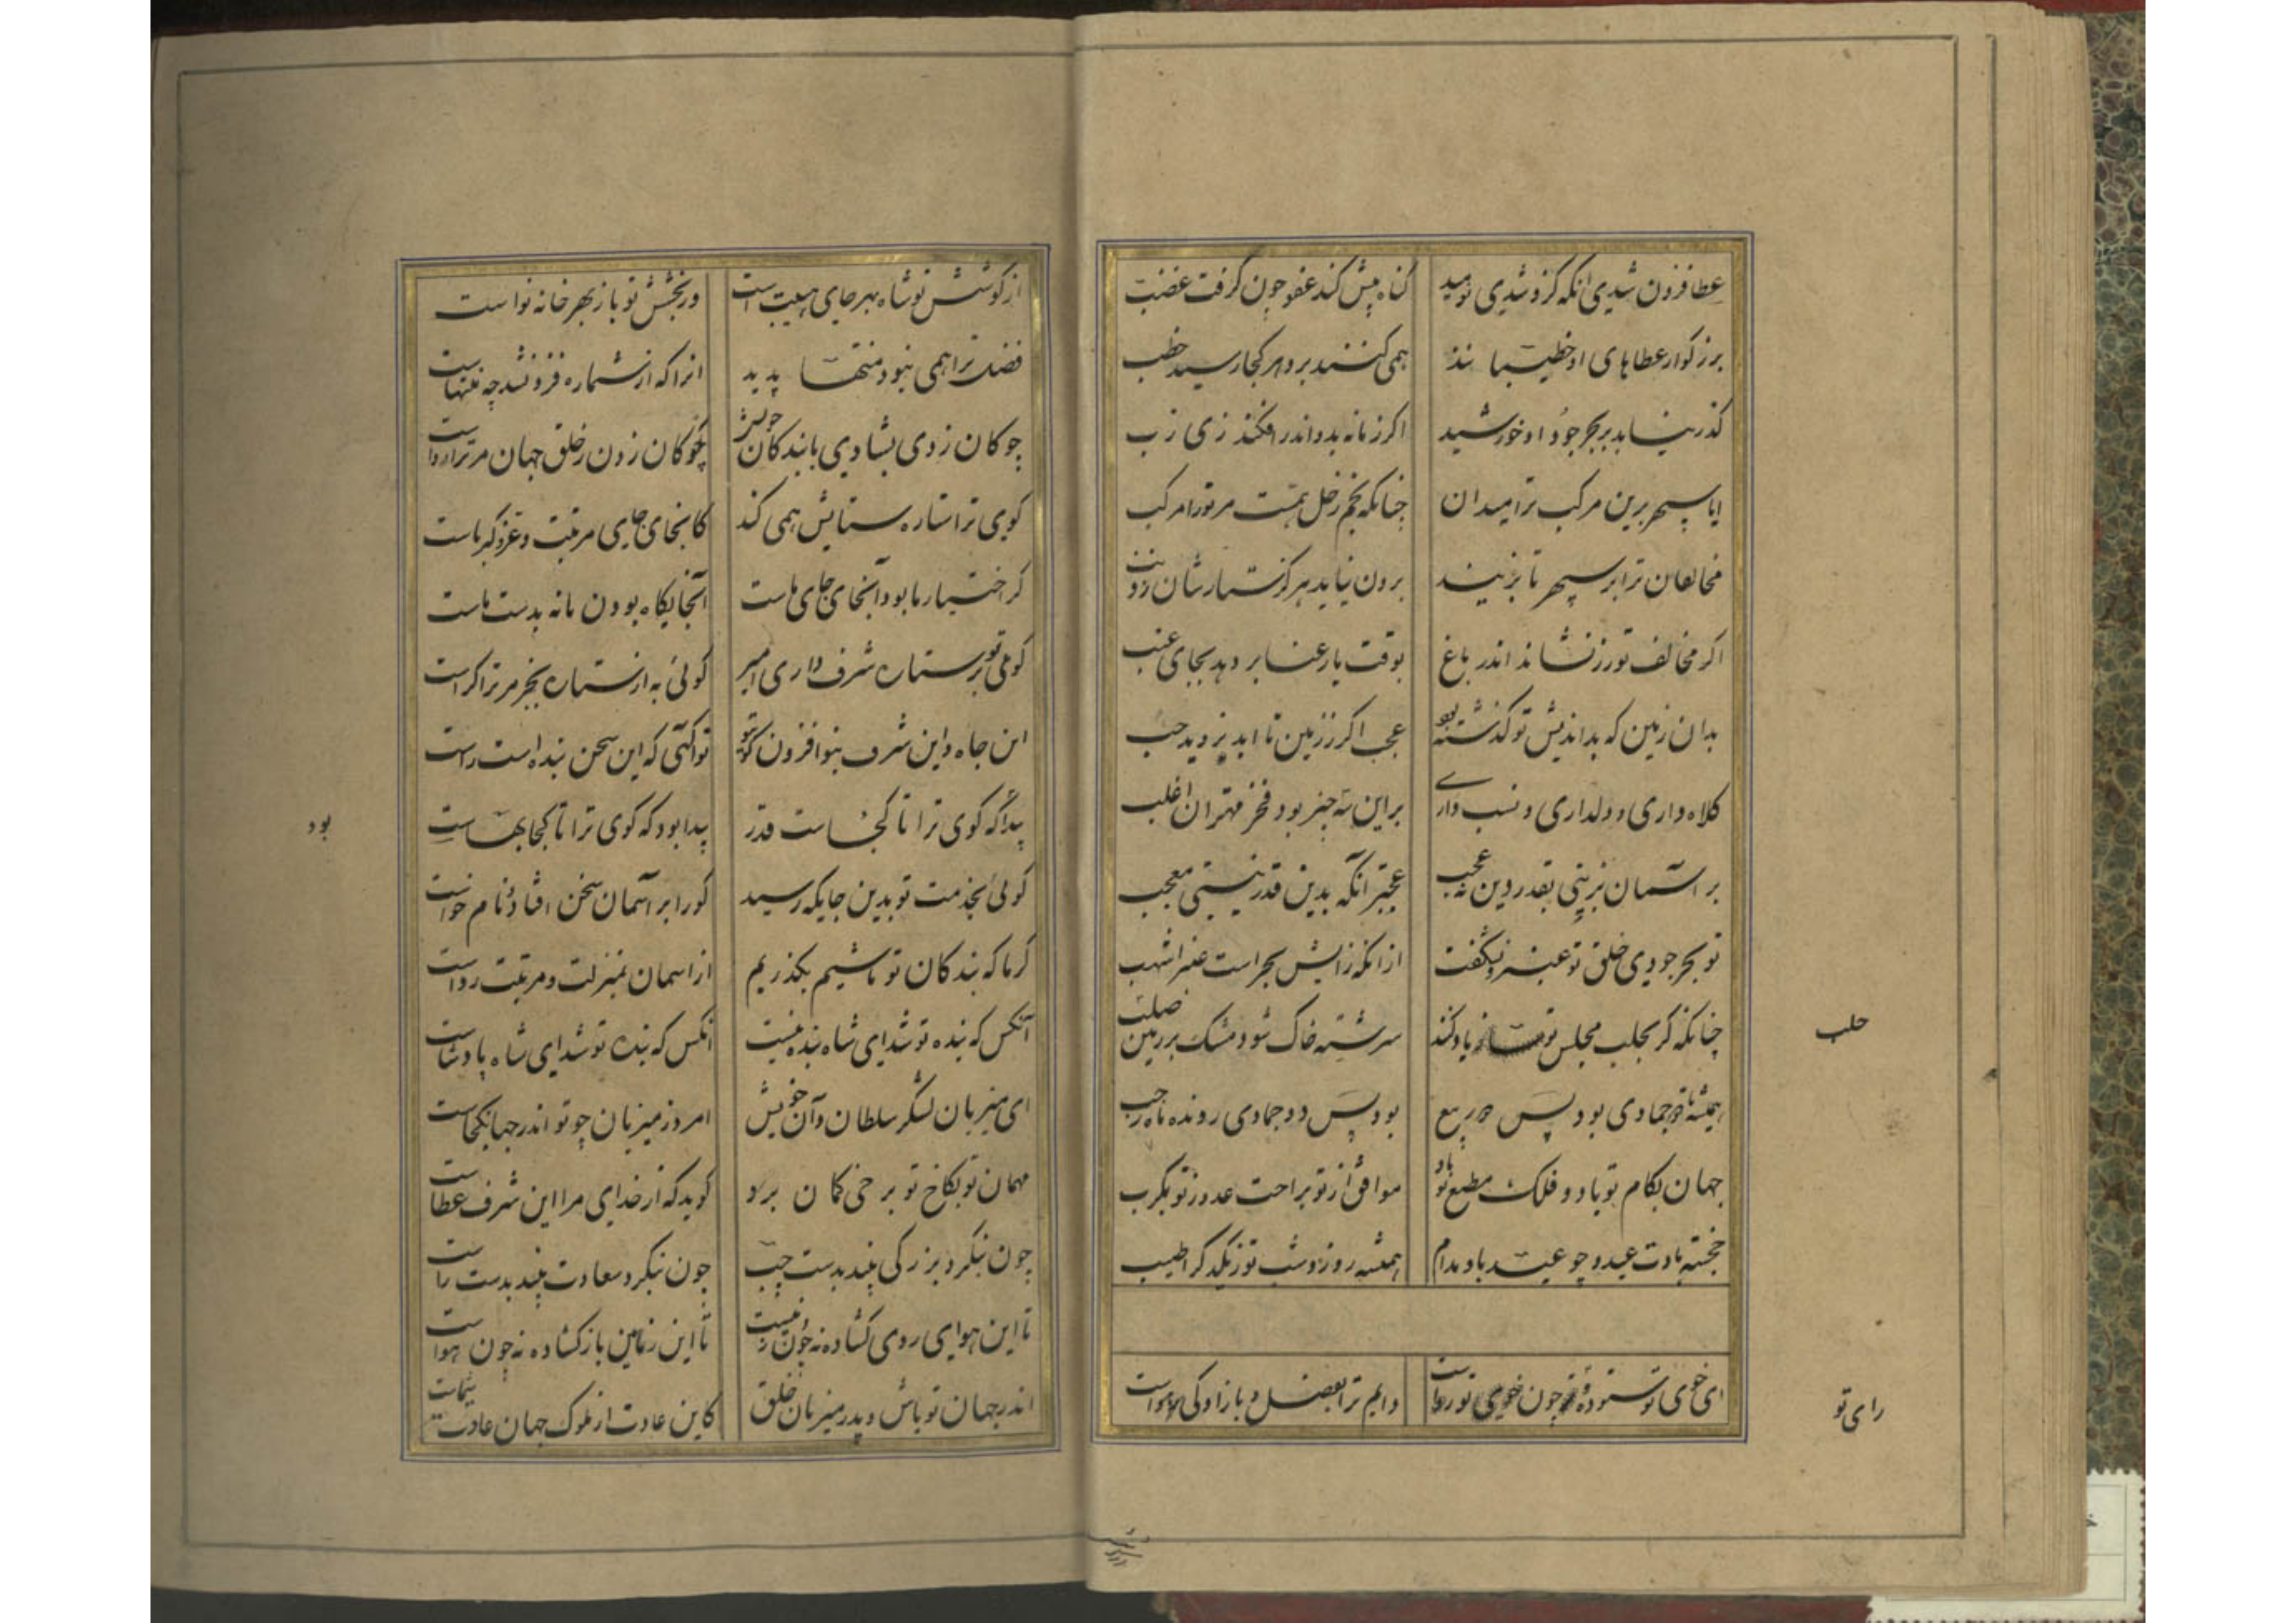 عطا فزون شدی انکه کزو شدی نومید کناه بیش کند عفو چون کرفت غضب
بزرکوار عطاهای او خطیبانند همی کنند برو هر کجا رسید خطب
کذر نیابد بر بحر جود او خورشید اکر زمانه بدو اندر افکند زی زب
ایا سپهر برین مرکب ترا میدان چنانکه نجم زحل همت مر تورا مرکب
مخالفان ترا بر سپهر تا بزیند برون نیاید هرکز ستارشان ز ذنب
اکر مخالف تو رز نشاند اندر باغ بوقت بار عنا بر دهد بجای عنب
بدان زمین که بداندیش تو کذشته بود عجب اکر ز زمین تا ابد بروید حب
کلاه داری و دل داری و نسب داری براین سه چیز بود فخر مهتران اغلب
بر آسمان بزینی بقدر وین نه عجب عجبتر آنکه بدین قدر نیستی معجب
تو بحر جودی خلق تو عنبر و نه شکفت از انکه زایش بحر است عنبر اشهب
چنانکه کر بحلب مجلس تو یاد کنند سرشته خاک شود مشک بر زمین حلب
حلب
همیشه تا دو جمادی بود پس دو ربیع بود پس دو جمادی رونده ماه رجب
جهان بکام تو باد و فلک مطیع تو باد موافق از تو براحت عدو ز تو بکرب
خجسته بادت عید و چو عید باد مدام همیشه روز و شب تو ز یکدکر اطیب
ای خوی تو ستوده و چون خوی تو رواست دایم ترا بفضل و بازادکی هواست
رای تو
از کوشش تو شاه بهر جای هیبت است وز بخشش تو باز بهر خانه نواست
فضل ترا همی نبود منتها پدید انرا که از شماره فزون شد چه منتهاست
چوکان زدی بشادی با بندکان خویش چوکان زدن ز خلق جهان مر ترا رواست
کوی ترا ستاره ستایش همی کند کانجای جای مرتبت و عز و کبریاست
کر اختیار ما بود آنجای جای ماست آنجایکاه بودن ما نه بدست ماست
کوئی تو بر ستاره شرف داری امیر کوئی به از ستاره بجز مر ترا کراست
این جاه و این شرف بتو افزون کونه تو آکهی که این سخن بنده است راست
پیدا که کوی ترا تا کجاست قدر پیدا بود که کوی ترا تا کجا بهاست
بود
کوئی بخدمت تو بدین جایکه رسید کورا بر آسمان سخن افتاد و نام خواست
کر ما که بندکان تو باشیم بکذریم از اسمان بمنزلت و مرتبت رواست
آنکس که بنده تو شد ای شاه بنده نیست انکس که بنده تو شد ای شاه پادشاست
ای میزبان لشکر سلطان و آن خویش امروز میزبان چو تو اندر جهان کجاست
مهمان تو بکاخ تو بر خی کمان برد کوید که از خدای مرا این شرف عطاست
چون بنکرد بزرکی بیند بدست چپ چون بنکرد سعادت بیند بدست راست
تا این هوای روی کشاده نه چون زمیست تا این زمین باز کشاده نه چون هواست
اندر جهان تو باش و پدر میزبان خلق کاین عادت از ملوک جهان عادت شماست